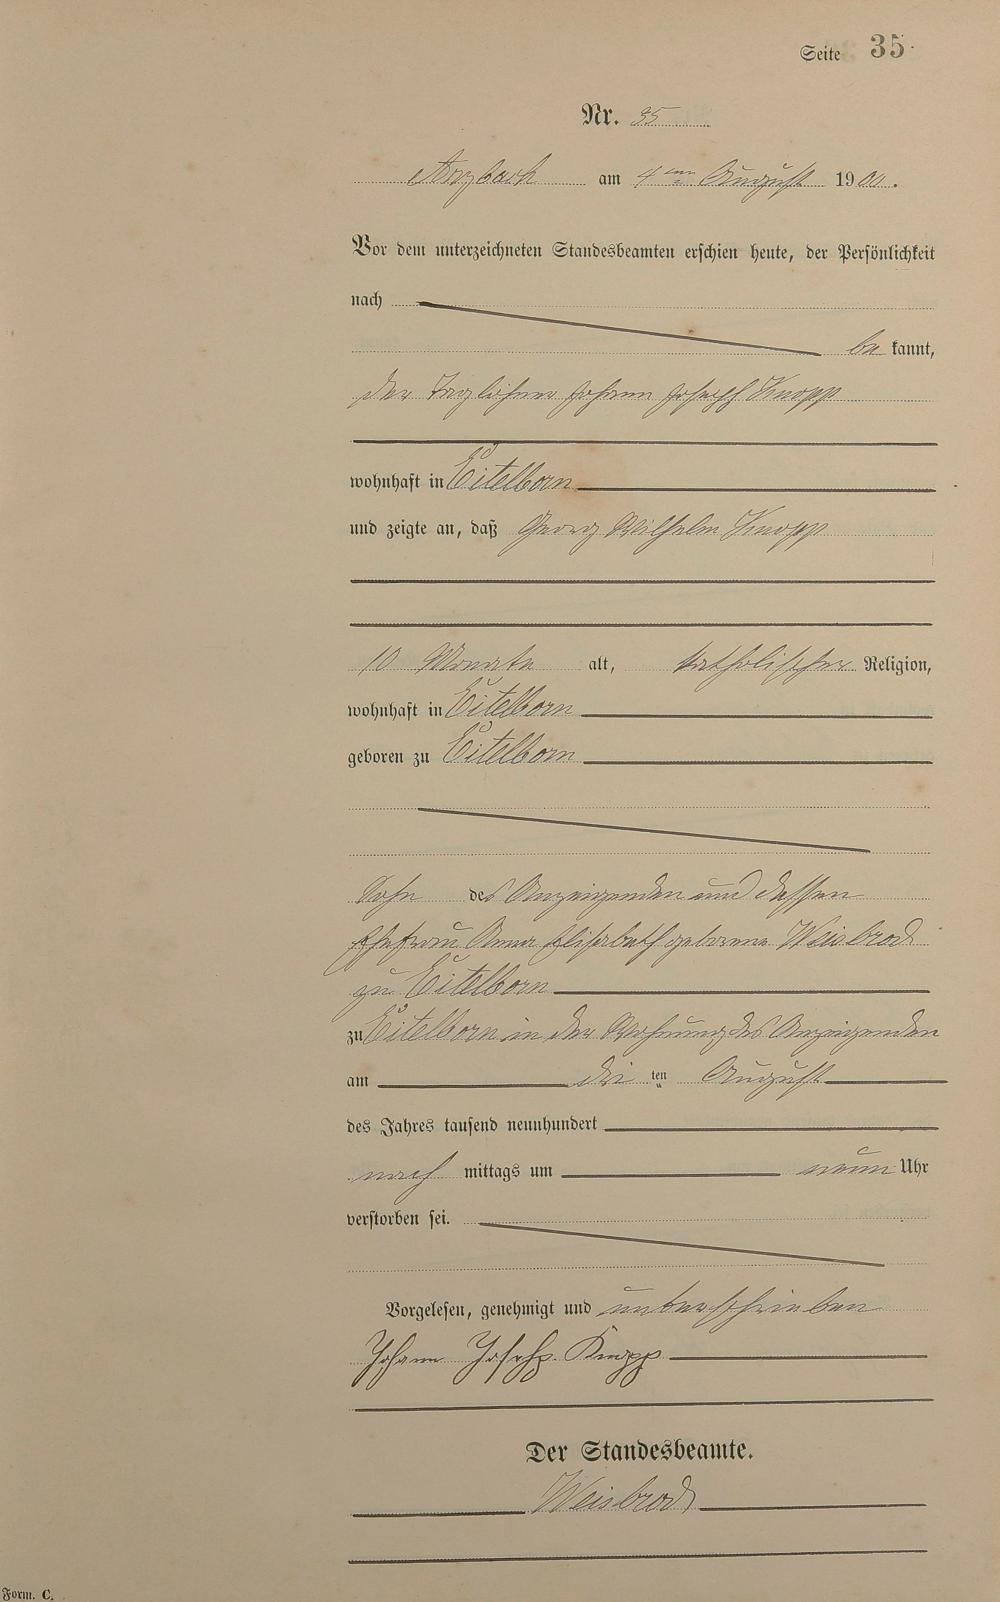 Seite 35.
Nr. 35
Arzbach am 4ten August 1900.
Vor dem unterzeichneten Standesbeamten erschien heute, der Persönlichkeit
nach
be kannt,
der Taglöhner Johann Joseph Knopp
wohnhaft in Eitelborn
und zeigte an, daß Georg Wilhelm Knopp
10 Monate alt, katholischer Religion,
wohnhaft in Eitelborn
geboren zu Eitelborn
Sohn des Anzeigenden und dessen
Ehefrau Anna Elisabeth geborene Weisbrod
zu Eitelborn
zu Eitelborn in der Wohnung des Anzeigenden
am dri ten August
des Jahres tausend neunhundert
nach mittags um neun Uhr
verstorben sei.
Vorgelesen, genehmigt und unterschrieben
Johann Joseph Knopp
Der Standesbeamte.
Weisbrod
Form. C.